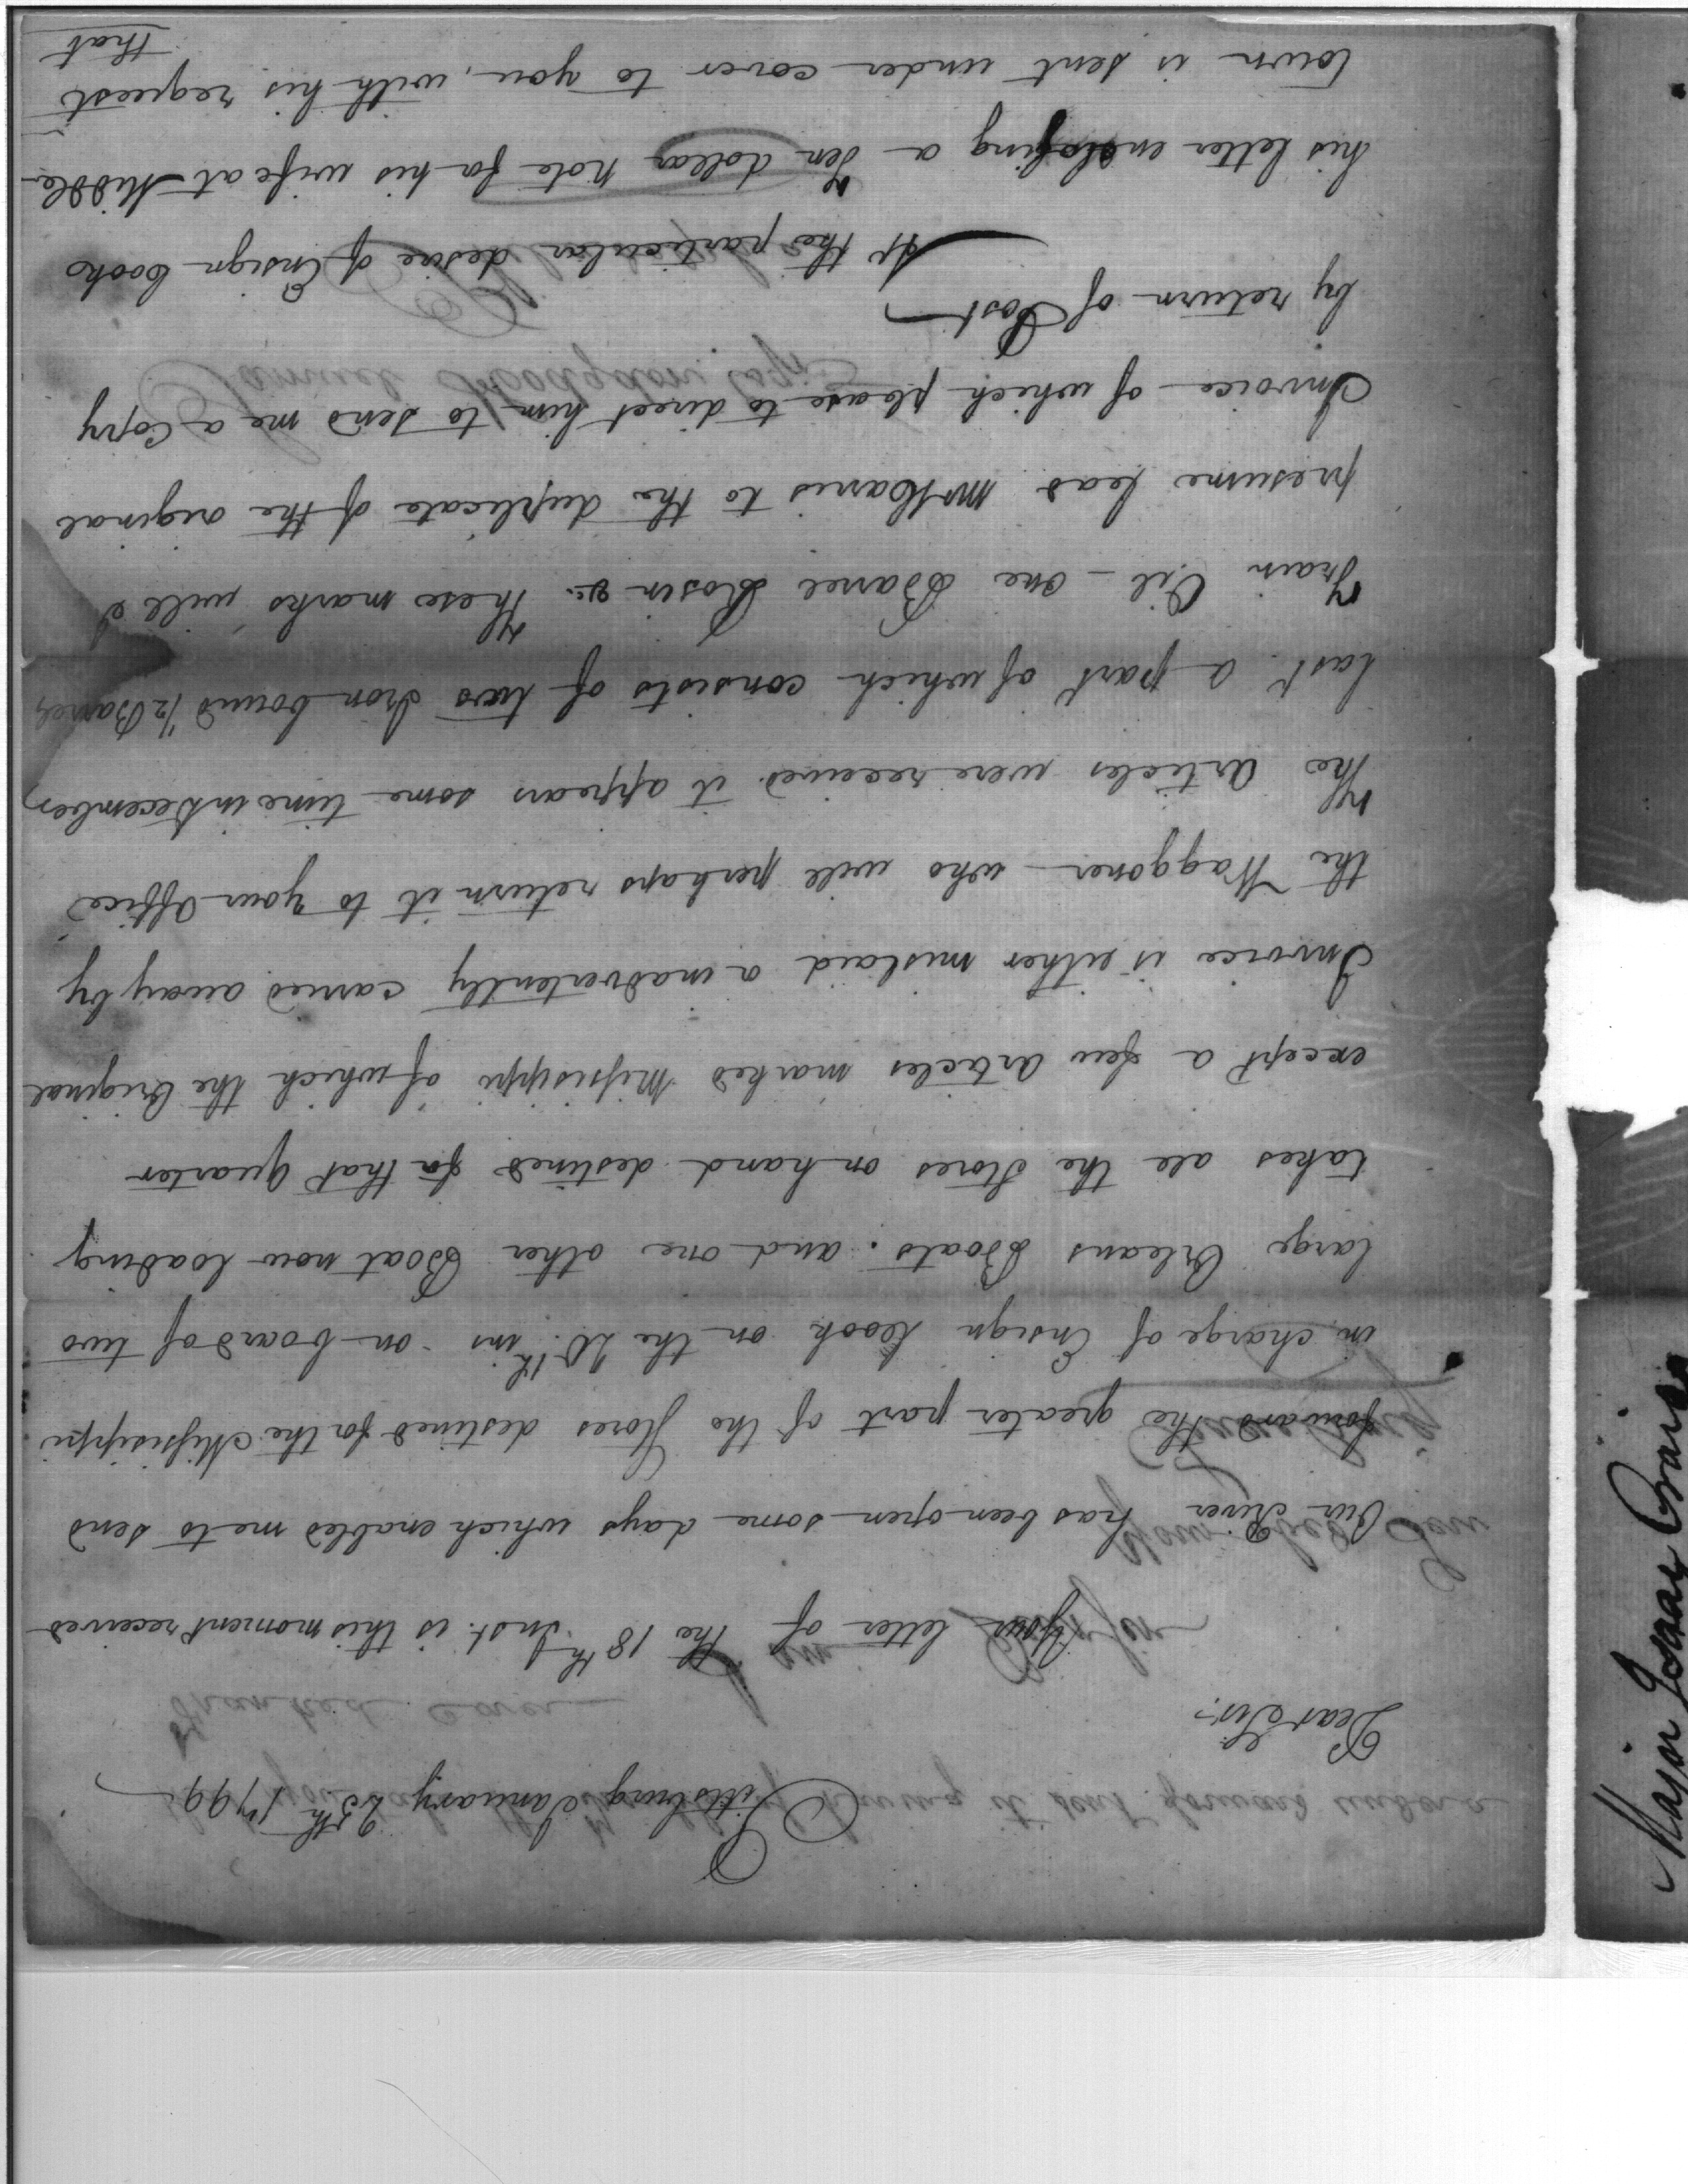 Pittsburg January 25th 1799
Dear Sir.
Your letter of the 18th Inst. is this moment received
Our River has been open some days which enabled me to send
forward the greater part of the Stores destined for the Missisippi
in charge of Ensign Cook on the 20th ins. on board of two
large Orleans Boats. and one other Boat now loading
takes all the Stores on hand destined for that Quarter
except a few articles marked Missisippi of which the Original
Invoice is either mislaid or inadvertently carried away by
the Waggoner who will perhaps return it to your Office
The articles were received it appears some time in December
last a part of which consists of two Iron bound 1/2 Barrels
Train Oil – one Barrel Rosin &c. These marks will I
presume lead Mr Harris to the duplicate of the original
Invoice of which please to direct him to send me a Copy
by return of Post
At the particular desire of Ensign Cook
his letter enclosing a Ten dollar note for his wife at Middle
town is sent under cover to you, with his request
that
Major Isaac Craig
Samuel Hodgdon Esqr
having it sent forward under a
franked cover
I am
Dear Sir